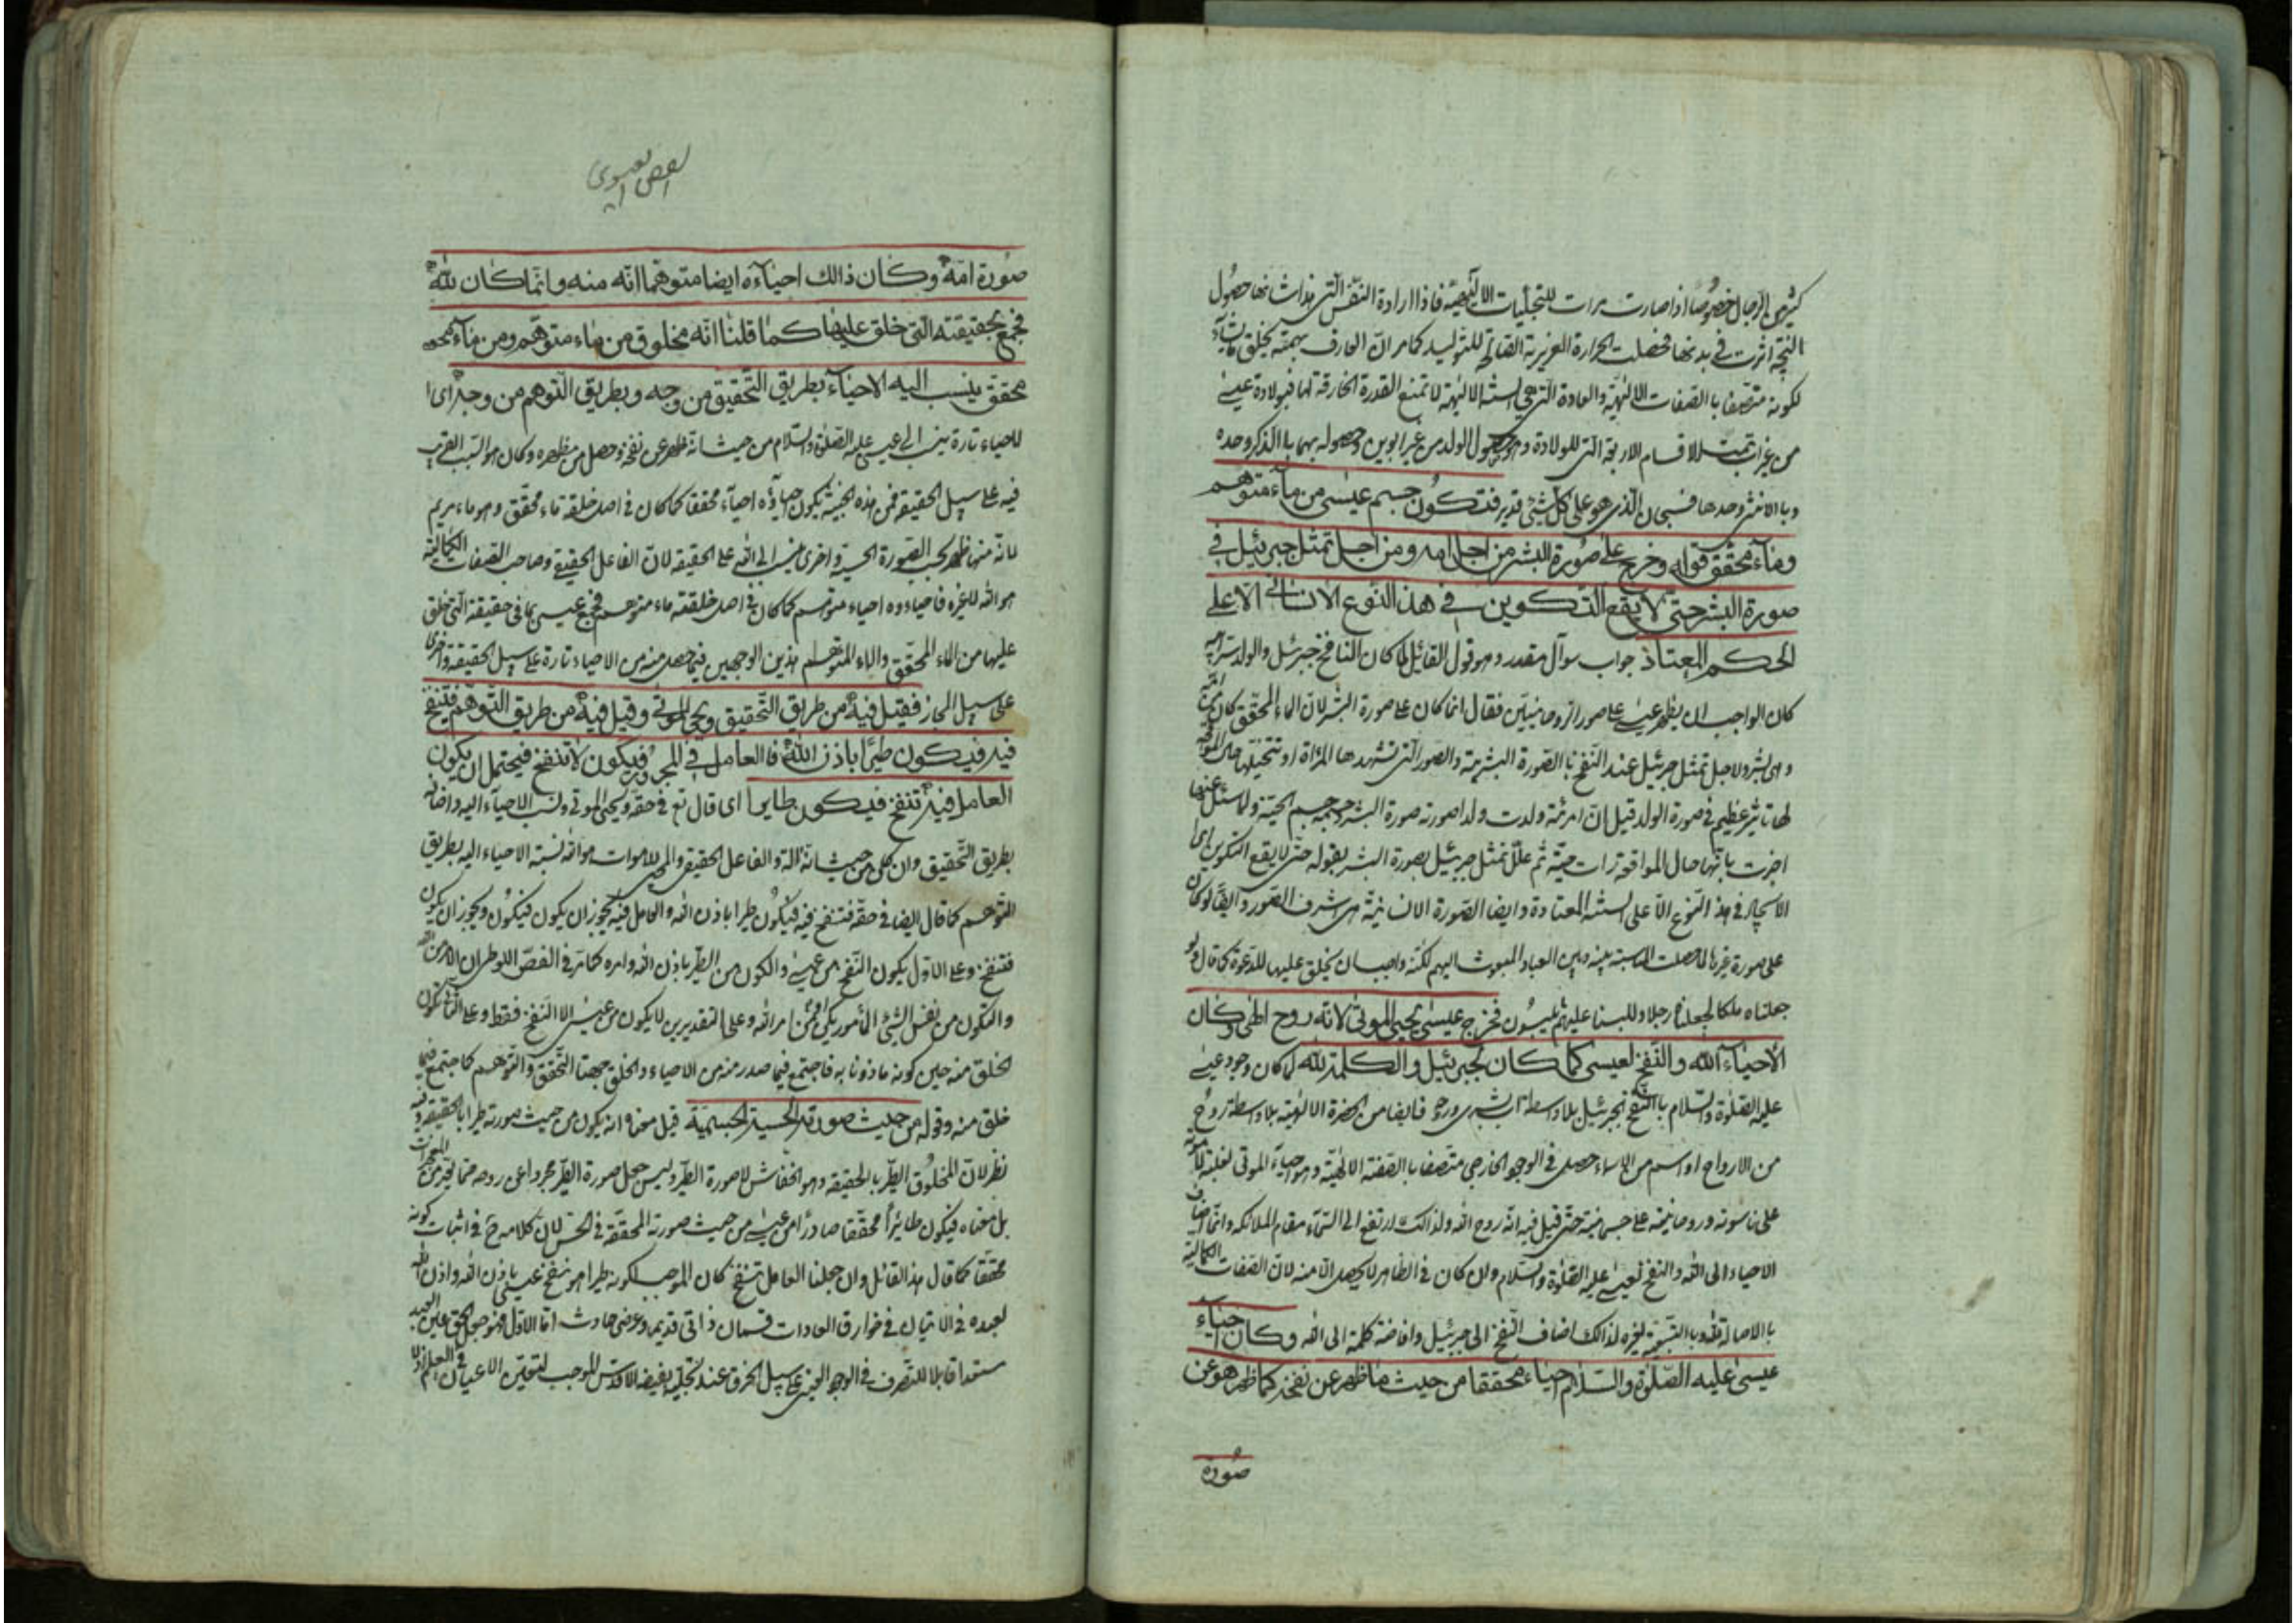 كثير من الرجال خصوصا اذا صارت مرات للتجليات الالهية فاذا ارادة النفس التى هذا شانها حصول
النتيجة اثرت فى بدنها فحصلت الحرارة الغريزية القابلة للتوليد كما مر ان العارف بهمته يخلق ما يشاء
لكونه متصفا بالصفات الالهية والعادة التى هى السنة الالهية لا تمنع القدرة الخارقة لها فبولادة عيسى
من غير اب تمت الاقسام الاربعة التى للولادة وهى حصول الولد من غير ابوين وحصوله بهما وبالذكر وحده
وبالانثى وحدها فسبحان الذى هو على كل شىء قدير فتكون جسم عيسى من ماء متوهم
وماء محقق قوله وخرج على صورة البشر من اجل امه ومن اجل تمثل جبرئيل فى
صورة البشر حتى لا يقع التكوين فى هذا النوع الانسانى الا على
الحكم المعتاد جواب سوآل مقدر وهو قول القائل لما كان النافخ جبرئيل والولد سر ابيه
كان الواجب ان يظهر عيسى على صورة الروحانيين فقال انما كان على صورة البشر لان الماء المحقق كان من امه
وهى بشر ولاجل تمثل جبرئيل عند النفخ بالصورة البشرية والصور التى تشهدها المرأة او تتخيلها حال المواقعة
لها تاثير عظيم فى صورة الولد قيل ان امرئة ولدت ولدا صورته صورة البشر وجسمه جسم الحية ولما سئل عنها
اخبرت بانها حال المواقعة رات حية ثم علل تمثل جبرئيل بصورة البشر بقوله حتى لا يقع التكوين اى
الايجاد فى هذا النوع الا على السنة المعتادة وايضا الصورة الانسانية هى اشرف الصور وايضا لو كان
على صورة غيرها لما حصلت المناسبة بينه وبين العباد المبعوث اليهم لكنه واجب ان يخلق عليها للدعوة كما قال ولو
جعلناه ملكا لجعلناه رجلا وللبسنا عليهم ما يلبسون فخرج عيسى يحيى الموتى لانه روح الهى وكان
الاحياء لله والنفخ لعيسى كما كان لجبرئيل والكلمة لله لما كان وجود عيسى
عليه الصلوة والسلام بالنفخ لجبرئيل بلا واسطة اب بشرى وروحه فايضا من الحضرة الالوهية بلا واسطة روح
من الارواح او اسم من الاسماء حصل فى الوجود الخارجى متصفا بالصفة الالهية وهو احياء الموتى لغلبة لاهوته
على ناسوته وروحانيته على جسمانيته حتى قيل فيه انه روح الله ولذالك ارتفع الى السماء مقام الملائكه وانما اضاف
الاحياء الى الله والنفخ لعيسى عليه الصلوة والسلام وان كان فى الظاهر لا يحصل الا منه لان الصفات الكمالية
بالاصالة لله وبالتبعية لغيره لذالك اضاف النفخ الى جبرئيل وافاضة كلمة الى الله وكان احياء
عيسى عليه الصلوة والسلام احياء محققا من حيث ما ظهر عن نفخه كما ظهر هو عن
صورة
الفص العيسوى
صورة امه وكان ذالك احياءه ايضا متوهما انه منه وانما كان لله
فجمع بحقيقته التى خلق عليها كما قلنا انه مخلوق من ماء متوهم ومن ماء
محقق ينسب اليه الاحياء بطريق التحقيق من وجه وبطريق التوهم من وجه اى
الاحياء تارة ينسب الى عيسى عليه الصلوة والسلام من حيث انه ظهر عن نفخه وحصل من مظهره وكان هو السبب القريب
فيه على سبيل الحقيقة فمن هذه الحيثية يكون احياؤه احياء محققا كما كان فى اصل خلقة ماء محقق وهو ماء مريم
لانه منها ظهر بحسب الصورة الحسية واخرى ينسب الى الله على الحقيقة لان الفاعل الحقيقى وصاحب الصفات الكمالية
هو الله لا غيره فاحياءه احياء متوهم كما كان فى اصل خلقته ماء متوهم فجمع عيسى بما فى حقيقة التى خلق
عليها من الماء المحقق والماء المتوهم هذين الوجهين فيما حصل منه من الاحياء تارة على سبيل الحقيقة واخرى
على سبيل المجاز فقيل فيه من طريق التحقيق ويحيى الموتى وقيل فيه من طريق التوهم فتنفخ
فيه فيكون طيرا باذن الله فالعامل فى المجرور فيكون لا تنفخ فيحتمل ان يكون
العامل فيه تنفخ فيكون طايرا اى قال تع فى حقه ويحيى الموتى ونسب الاحياء اليه واضافه
بطريق التحقيق وان كان من حيث انه آلة والفاعل الحقيقى والمحيى للاموات هو الله نسبة الاحياء اليه بطريق
التوهم كما قال ايضا فى حقه فتنفخ فيه فيكون طيرا باذن الله والعامل فيه يجوز ان يكون فيكون ويجوز ان يكون
فتنفخ وعلى الاول يكون النفخ من عيسى والكون من الطير باذن الله وامره كما مر فى الفص اللوطى ان الامر من الله
والتكون من نفس الشىء المأمور بكن امر الله وعلى التقديرين لا يكون من عيسى الا النفخ فقط وعلى الثانى يكون
الخلق منه حين كونه ماذونا به فاجتمع فيما صدر منه من الاحياء والخلق جهتا التحقق والتوهم كما اجتمع فيما
خلق منه وقوله من حيث صورته الحسية الجسمية قيل معناه انه يكون من حيث صورته طيرا بالحقيقة وفيه
نظر لان المخلوق الطير بالحقيقة وهو الخفاش لا صورة الطير وليس جعل صورة الطير مجردا عن روحه مما يعد من المعجزات
بل معناه فيكون طائرا محققا صادرا من عيسى من حيث صورته المحققة فى الحس لان كلامه فى اثبات كونه
محققا كما قال هذا القائل وان جعلنا العامل تنفخ كان الموجب لكونه طيرا هو نفخ عيسى باذن الله واذن الله
لعبده فى الاتيان فى خوارق العادات قسمان ذاتى قديم وعرضى حادث اما الاول فهو جعل الحق عين العبد
مستعدا قابلا للتصرف فى الوجود العينى على سبيل الخرق عند تجليه بفيضه الاقدس الموجب لتعين الاعيان فى العلم ازلا